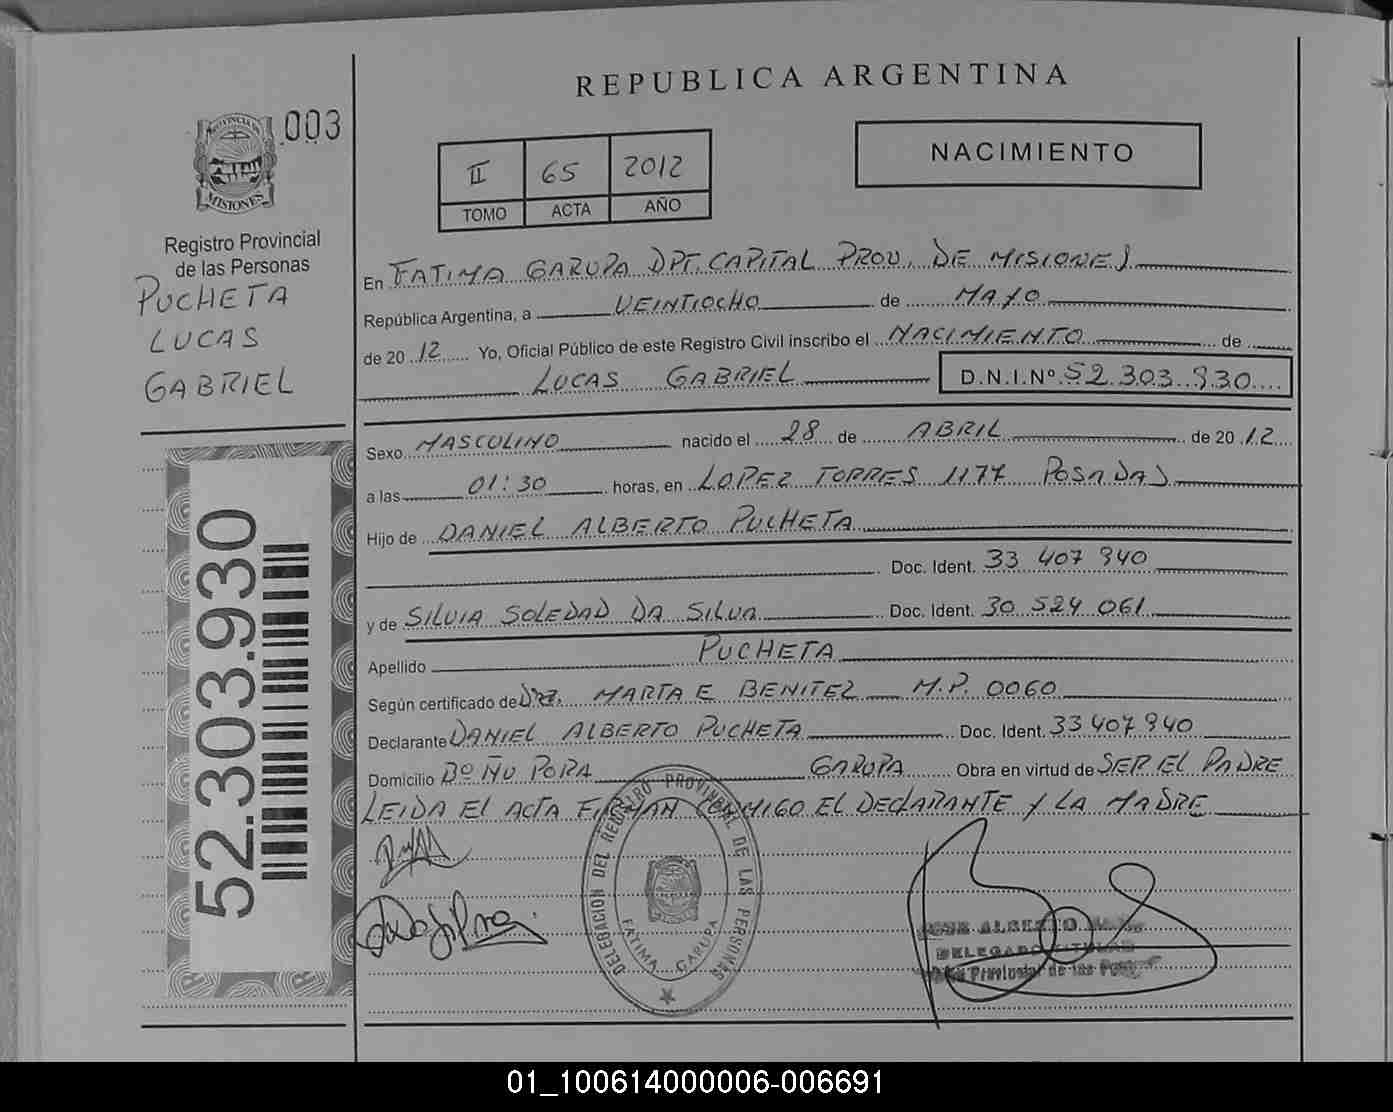 REPUBLICA ARGENTINA
PROVINCIA DE MISIONES
003
II 65 2012
TOMO ACTA AÑO
NACIMIENTO
Registro Provincial
de las Personas
PUCHETA
LUCAS
GABRIEL
52.303.930
En FATIMA GARUPA DPT. CAPITAL PROV. DE MISIONES
República Argentina, a VEINTIOCHO de MAYO
de 20 12 Yo, Oficial Público de este Registro Civil inscribo el NACIMIENTO de
LUCAS GABRIEL D.N.I.Nº 52.303.930
Sexo MASCULINO nacido el 28 de ABRIL de 20 12
a las 01:30 horas, en LOPEZ TORRES 1177 POSADAS
Hijo de DANIEL ALBERTO PUCHETA
Doc. Ident. 33 407 940
y de SILVIA SOLEDAD DA SILVA Doc. Ident. 30 524 061
Apellido PUCHETA
Según certificado de Dra. MARTA E BENITEZ M.P. 0060
Declarante DANIEL ALBERTO PUCHETA Doc. Ident. 33 407 940
Domicilio Bº ÑU PORA GARUPA Obra en virtud de SER EL PADRE
LEIDA EL ACTA FIRMAN CONMIGO EL DECLARANTE Y LA MADRE
DELEGACION DEL REGISTRO PROVINCIAL DE LAS PERSONAS
FATIMA GARUPA
JOSE ALBERTO
DELEGADO TITULAR
Provincial de las
01_100614000006-006691